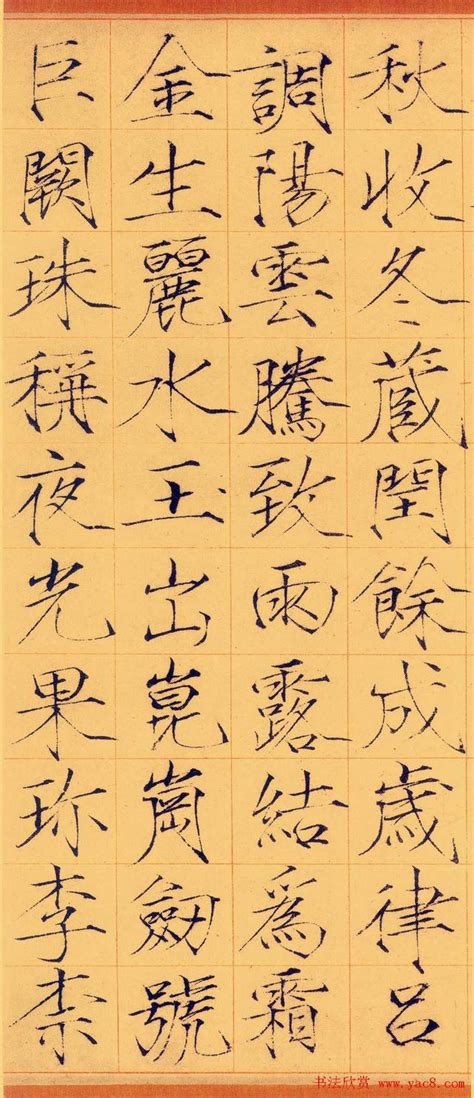 秋收冬蔵閏餘成歲律呂
調陽雲騰致雨露結爲霜
金生麗水玉出崑崗劒號
巨闕珠稱夜光果珎李柰
书法欣赏 www.yac8.com